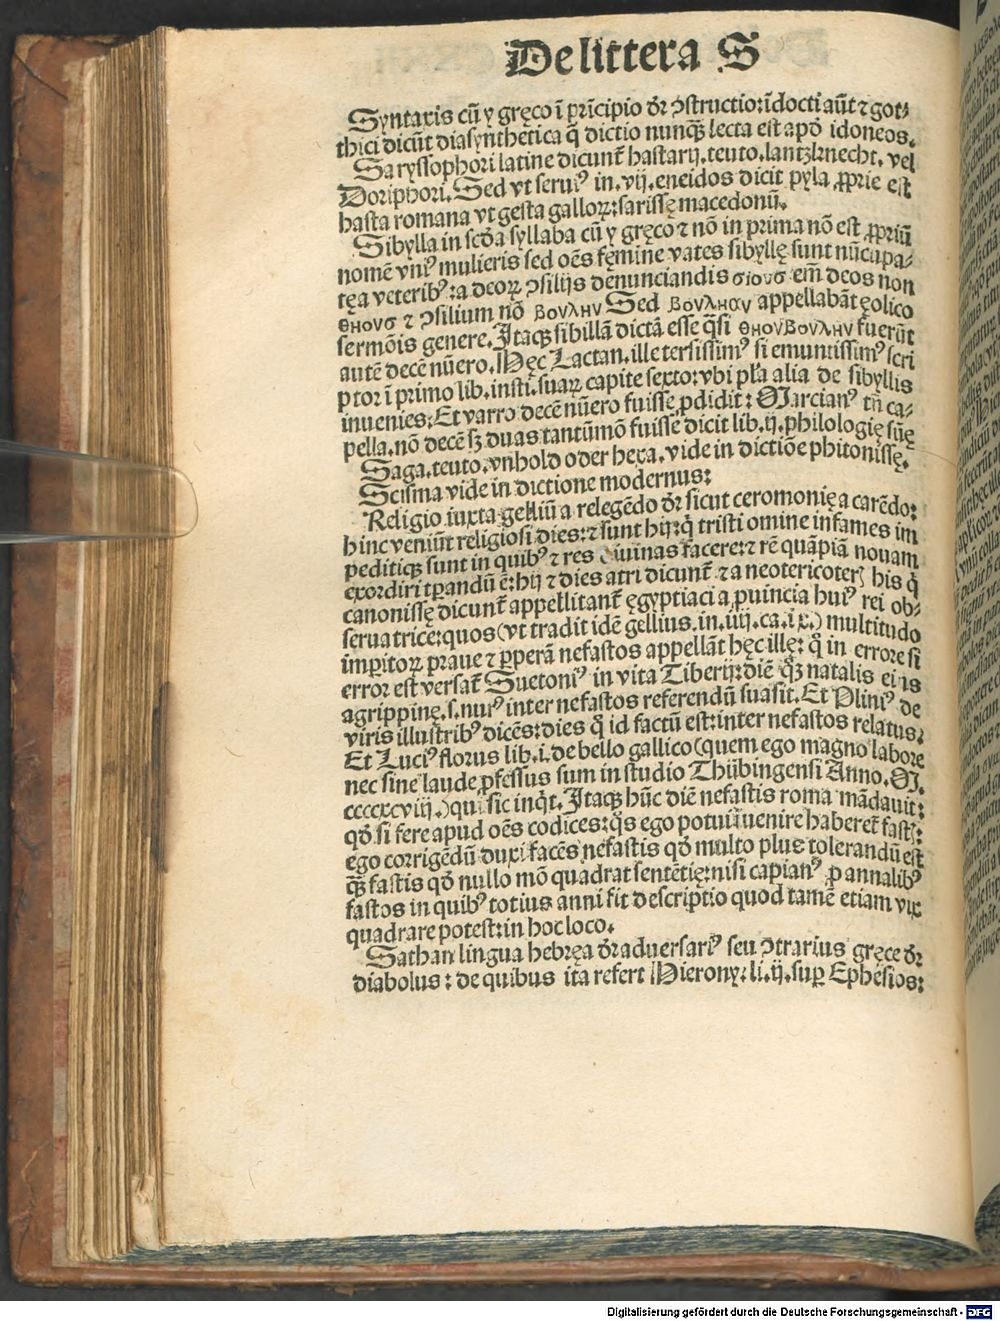 De littera S
Syntaxis cũ y gręco ĩ prĩcipio dr̃ ɔstructio:ĩdocti aũt ⁊ got⸗
thici dicũt diasynthetica q̃ dictio nunq̃ȝ lecta est apđ idoneos.
Saryssophori latine dicunt̃ hastarij.teuto.lantzknecht. vel
Doriphori. Sed vt seruiꝰ in.vij.eneidos dicit pyla ꝓprie est
hasta romana vt gesta galloꝝ:sarissę macedonũ.
Sibylla in scđa syllaba cũ y gręco ⁊ nõ in prima nõ est ꝓpriũ
nomẽ vniꝰ mulieris sed oẽs fęmine vates sibyllę sunt nũcupa⸗
tęa veteribꝰ:a deoꝝ ɔsilijs denunciandis σιουσ em̃ deos non
θηουσ ⁊ ɔsilium nõ βουληυ Sed βουληαυ appellabãt ęolico
sermõis genere. Itaqȝ sibillã dictã esse q̃si θηουβουληυ fuerũt
autẽ decẽ nũero. Hęc Lactan. ille tersissimꝰ si emunctissimꝰ scri
ptor ĩ primo lib. insti. suaꝝ capite sexto:vbi pl̃a alia de sibyllis
inuenies. Et varro decẽ nũero fuisse ꝓdidit: Marcianꝰ tñ ca⸗
pella.nõ decẽ sȝ duas tantũmõ fuisse dicit lib.ij.philologię sũę
Saga.teuto.vnhold oder hexa.vide in dictiõe phitonissę.
Scisma vide in dictione modernus:
Religio iuxta gelliũ a relegẽdo dr̃ sicut ceromonię a carẽdo:
hinc veniũt religiosi dies:⁊ sunt hij:q̃ tristi omine infames im
peditiqȝ sunt in quibꝰ ⁊ res diuinas facere:⁊ rẽ quãpiã nouam
exordiri tꝑandũ ẽ:hij ⁊ dies atri dicunt̃ ⁊ a neotericoteꝝ his q̃
canonissę dicunt̃ appellitant̃ ęgyptiaci a ꝓuincia huiꝰ rei ob⸗
seruatrice:quos (vt tradit idẽ gellius.in.iiij.ca.ix.) multitudo
imꝑitoꝝ praue ⁊ ꝑperã nefastos appellãt hęc ille: q̃ in errore si
error est versat̃ Suetoniꝰ in vita Tiberij:diẽ q̃ȝ natalis ei is
agrippinę.s.nurꝰ inter nefastos referendũ suasit. Et Pliniꝰ de
viris illustribꝰ dicẽs:dies q̃ id factũ est:inter nefastos relatus:
Et Luciꝰ florus lib.i.de bello gallico (quem ego magno labore
nec sine laude ꝓfessus sum in studio Thübingensi Anno. M.
ccccxcviij.) qui sic inq̃t. Itaqȝ hũc diẽ nefastis roma mãdauit:
qđ si fere apud oẽs codices:q̃s ego potui ĩuenire haberet̃ fast̃:
ego corrigẽdũ duxi facẽs nefastis qđ multo plus tolerandũ est
q̃ȝ fastis qđ nullo mõ quadrat sentẽtię:nisi capianꝰ ꝓ annalibꝰ
fastos in quibꝰ totius anni fit descriptio quod tamẽ etiam vix
quadrare potest:in hoc loco.
Sathan lingua hebręa dr̃ aduersariꝰ seu ɔtrarius gręce dr̃
diabolus: de quibus ita refert Hieronyꝫ: li.ij.suꝑ Ephesios:
Digitalisierung gefördert durch die Deutsche Forschungsgemeinschaft - DFG